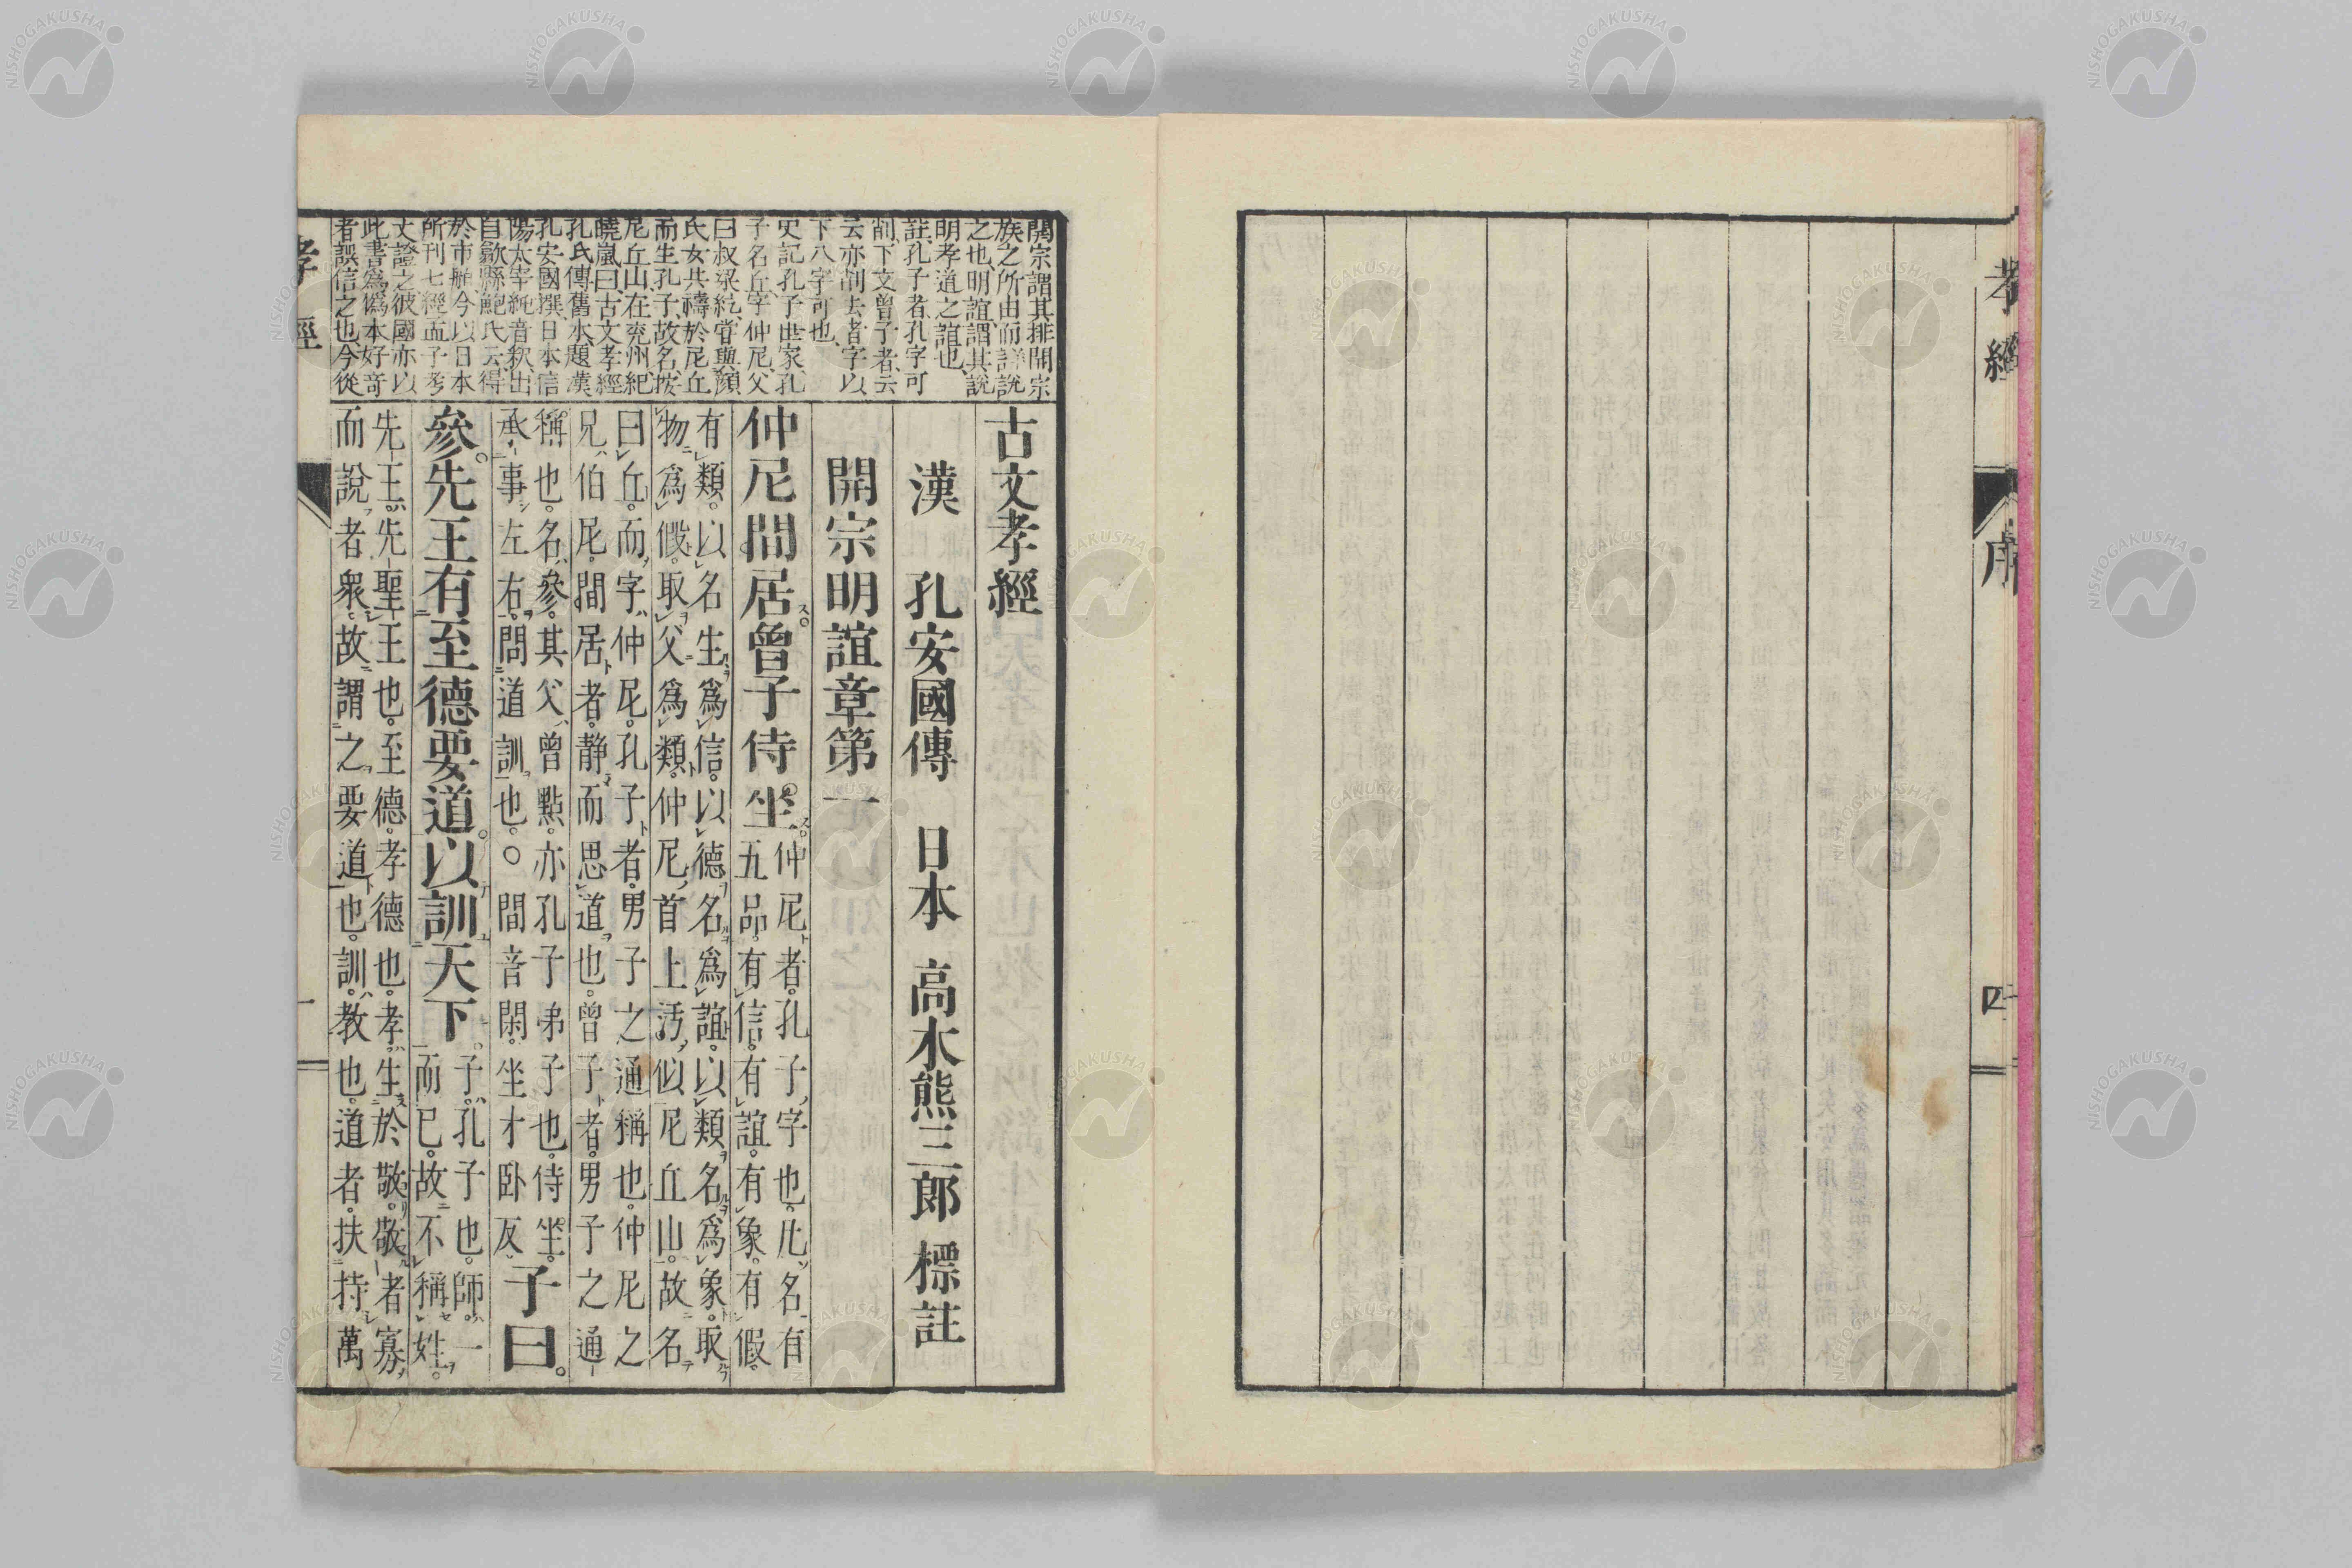 孝經
序
四
開宗謂其排開宗
族之所由而詳說
之也明誼謂其說
明孝道之誼也
註孔子者孔字可
削下文曾子者云
云亦削去者字以
下八字可也
史記孔子世家孔
子名丘字仲尼父
曰叔梁紇嘗與顏
氏女共禱於尼丘
而生孔子故名按
尼丘山在兗州紀
曉嵐曰古文孝經
孔氏傳舊本題漢
孔安國撰日本信
陽太宰純音釈出
自歙縣鮑氏云得
於市舶今以日本
所刊七經孟子考
文證之彼國亦以
此書爲僞本好奇
者誤信之也今從
古文孝經
漢 孔安國傳 日本 高木熊三郎 標註
開宗明誼章第一
仲尼間居曾子侍坐。仲尼者。孔子字也。凡名有
五品。有信。有誼。有象。有假。
有類。以名生爲信。以德名爲誼。以類名爲象。取
物爲假。取父爲類。仲尼首上汚。似尼丘山。故名
曰丘。而字仲尼。孔子者。男子之通稱也。仲尼之
兄伯尼。間居者。静而思道也。曾子者。男子之通
稱也。名參。其父曾點。亦孔子弟子也。侍坐。
承事左右。問道訓也。〇間音閑。坐才卧反 子曰。
參。先王有至德要道。以訓天下。子。孔子也。師一
而已。故不稱姓。
先王。先聖王也。至德。孝德也。孝生於敬。敬者寡
而說者衆。故謂之要道也。訓。教也。道者。扶持萬
孝經
一